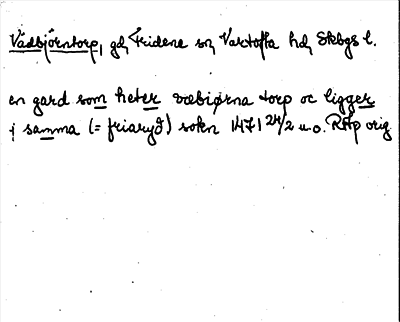 Vädbjörntorp, gd, Fridene sn, Vartofta hd, Skbgs l.
en gard som heter væbiørna torp oc ligger
i samma (= friaryd) sokn 1471 24/2 u.o. RAp orig